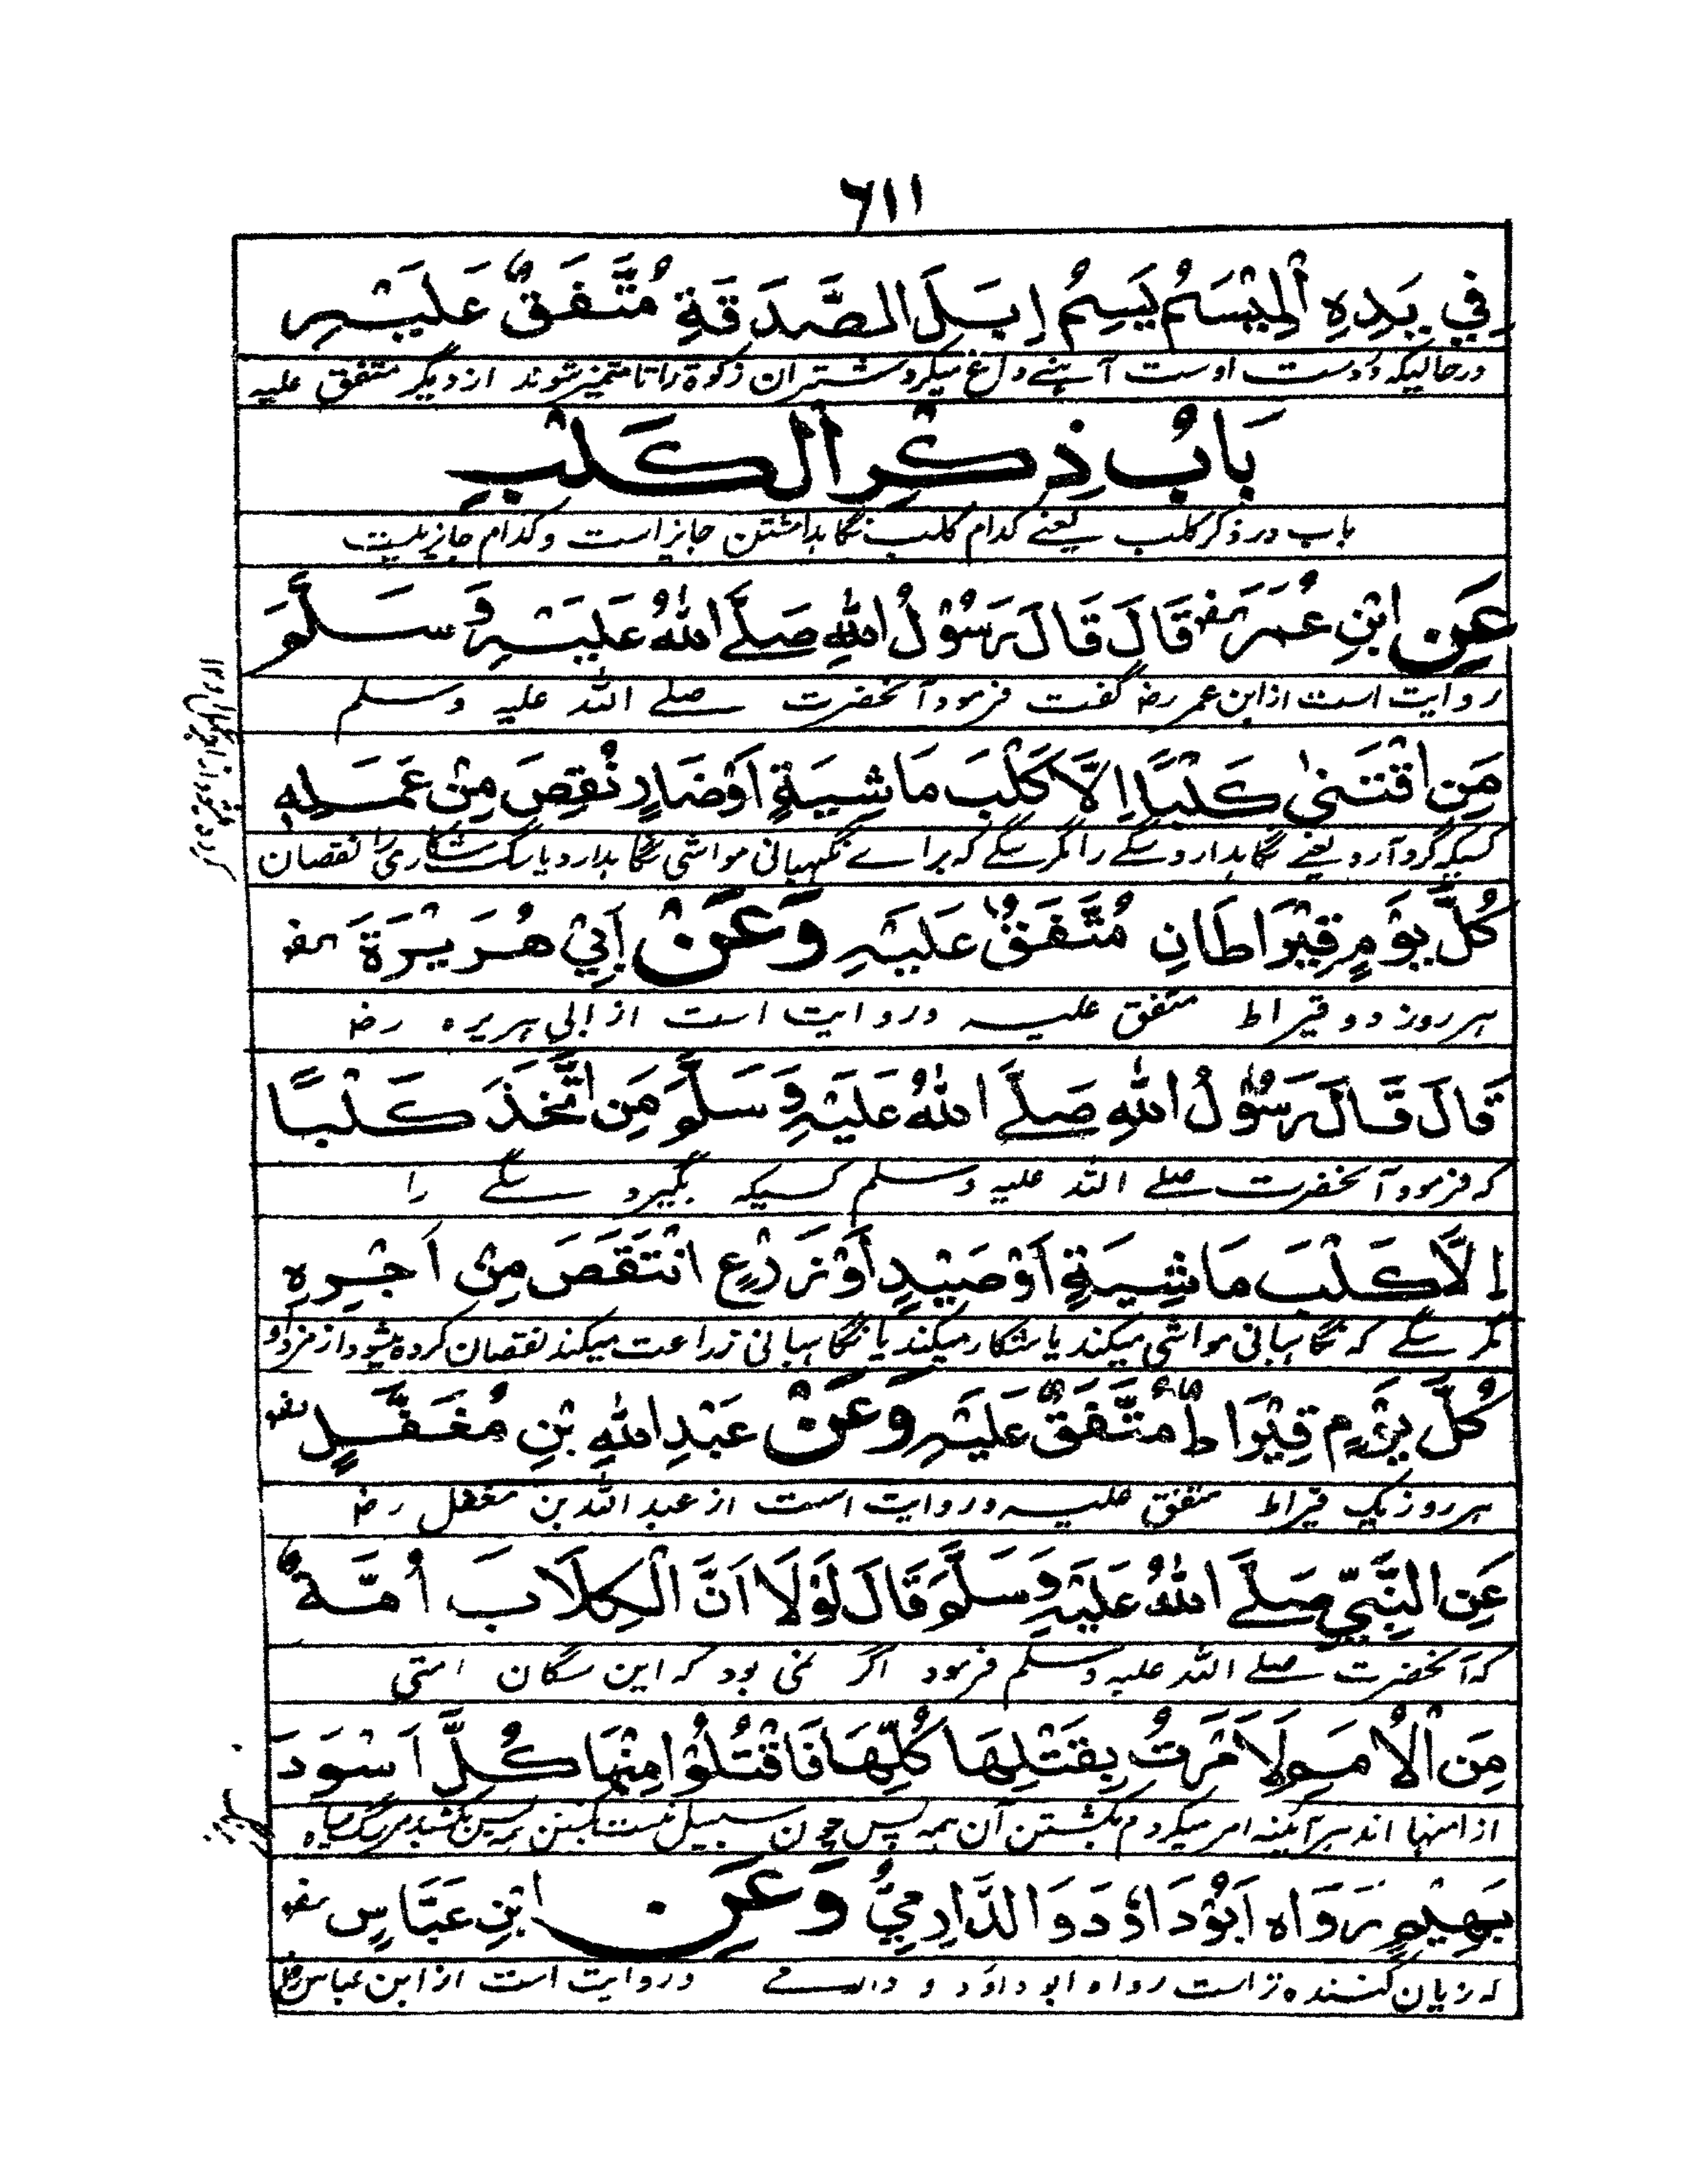 ٦١١
فِي يَدِهِ الْمِيْسَمُ يَسِمُ إِبِلَ الصَّدَقَةِ مُتَّفَقٌ عَلَيْهِ
درحالیکه در دست اوست آهنے داغ میکرد شتران زکوة را تا متمیز شوند از دیگر متفق علیه
بَابُ ذِكْرِ الْكَلْبِ
باب در ذکر کلب یعنے کدام کلب نگاهداشتن جایز است و کدام جایز نیست
عَنِ ابْنِ عُمَرَ رضہ قَالَ قَالَ رَسُوْلُ اللّٰهِ صَلَّے اللّٰهُ عَلَيْهِ وَسَلَّمَ
روایت است از ابن عمر رضہ گفت فرمود آنحضرت صلے اللّٰه علیه وسلم
مَنِ اقْتَنٰى كَلْبًا اِلَّا كَلْبَ مَاشِيَةٍ اَوْ ضَارٍ نُقِصَ مِنْ عَمَلِهٖ
کسیکه گرد آرد یعنے نگاهدارد سگے را مگر سگے که براے نگهبانی مواشی نگاهدارد یا سگ شکاری را نقصان
كُلَّ يَوْمٍ قِيْرَاطَانِ مُتَّفَقٌ عَلَيْهِ وَعَنْ اَبِيْ هُرَيْرَةَ رضہ
هر روز دو قیراط متفق علیه و روایت است از ابی هریره رضہ
قَالَ قَالَ رَسُوْلُ اللّٰهِ صَلَّے اللّٰهُ عَلَيْهِ وَسَلَّمَ مَنِ اتَّخَذَ كَلْبًا
که فرمود آنحضرت صلے اللّٰه علیه وسلم کسیکه بگیرد سگے را
اِلَّا كَلْبَ مَاشِيَةٍ اَوْ صَيْدٍ اَوْ زَرْعٍ انْتَقَصَ مِنْ اَجْرِهِ
مگر سگے که نگاهبانی مواشی میکند یا شکار میکند یا نگاهبانی زراعت میکند نقصان کرده میشود از مزد او
كُلَّ يَوْمٍ قِيْرَاطٌ مُتَّفَقٌ عَلَيْهِ وَعَنْ عَبْدِ اللّٰهِ بْنِ مُغَفَّلٍ رضہ
هر روز یک قیراط متفق علیه و روایت است از عبد اللّٰه بن مغفل رضہ
عَنِ النَّبِيِّ صَلَّے اللّٰهُ عَلَيْهِ وَسَلَّمَ قَالَ لَوْلَا اَنَّ الْكِلَابَ اُمَّةٌ
که آنحضرت صلے اللّٰه علیه وسلم فرمود اگر نمی بود که این سگان امتی
مِنَ الْاُمَمِ لَاَمَرْتُ بِقَتْلِهَا كُلِّهَا فَاقْتُلُوْا مِنْهَا كُلَّ اَسْوَدَ
از امتها اند هر آئینه امر میکردم بکشتن آن همه پس چون سبیل نیست بکشتن همه پس بکشید هر سگ سیاه
بَهِيْمٍ رَوَاه اَبُوْ دَاوٗدَ وَالدَّارِمِيُّ وَعَنِ ابْنِ عَبَّاسٍ رضہ
که زیان کننده تر است رواه ابو داؤد و دارمے و روایت است از ابن عباس رضہ